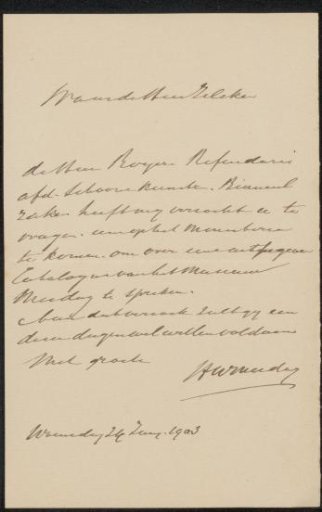 Waarde Heer Zilcken
de Heer Royer Referendaris
afd. Schoone Kunsten. Binnenl
Zaken heeft mij verzocht u te
vragen. eens op het Ministerie
te komen. om over eene uit te geven
Catalogus van het Museum
Mesdag te spreken.
Aan dat verzoek zult gij een
dezer dagen wel willen voldoen
Met groete
HWMesdag
Woensdag 24 Juny. 1903